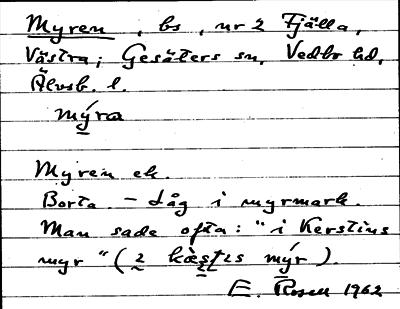 Myren, bs, nr 2 Fjälla,
Västra; Gesäters sn, Vedbo hd,
Älvsb. l.
mýra
Myren ek.
Borta. - Låg i myrmark.
Man sade ofta: "i Kerstins
myr" (ɪ kæstɪs mýr).
E. Rosell 1962